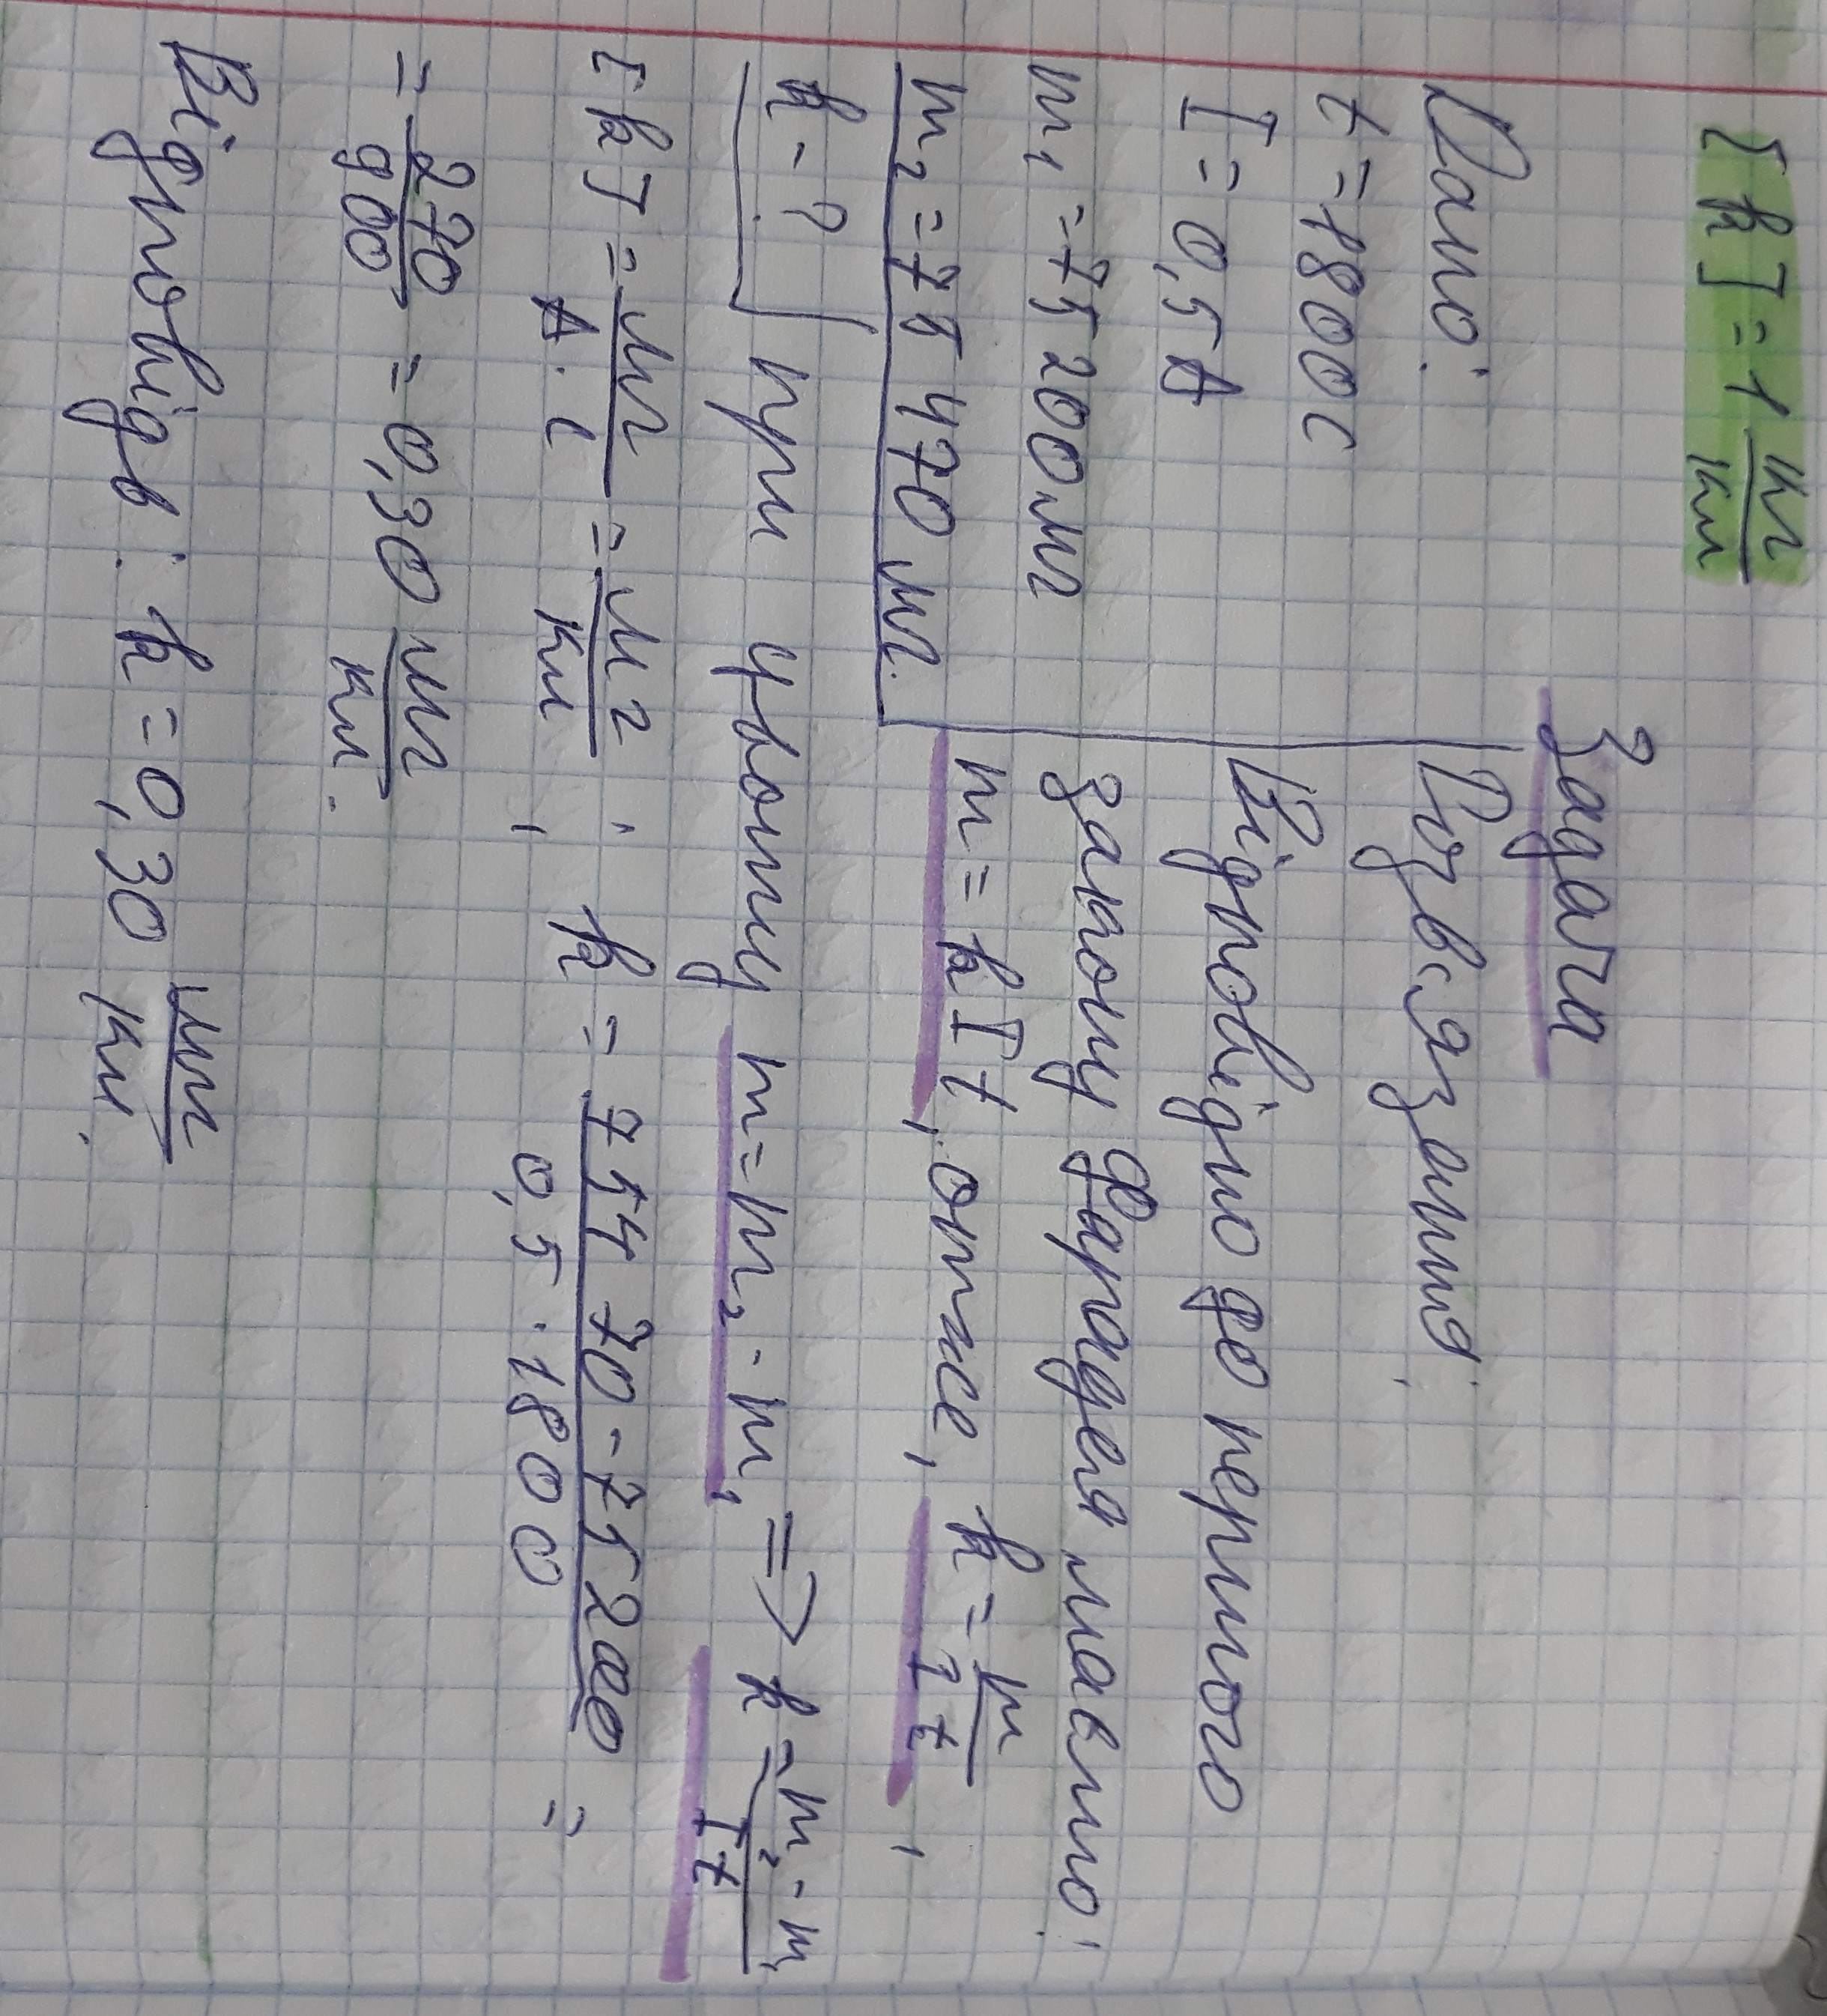 [k] = 1 кг/Кл
Задача
Дано:
t = 1800 с
I = 0,5 А
m₁ = 75 200 мг
m₂ = 75 470 мг.
k - ?
Розв'язання:
Відповідно до першого
закону Фарадея маємо:
m = kIt, отже, k = m/It,
при цьому m = m₂ - m₁ => k = m₂ - m₁/It
[k] = мг/А·с = мг/Кл; k = 75470 - 75200/0,5·1800 =
= 270/900 = 0,30 мг/Кл.
Відповідь: k = 0,30 мг/Кл.